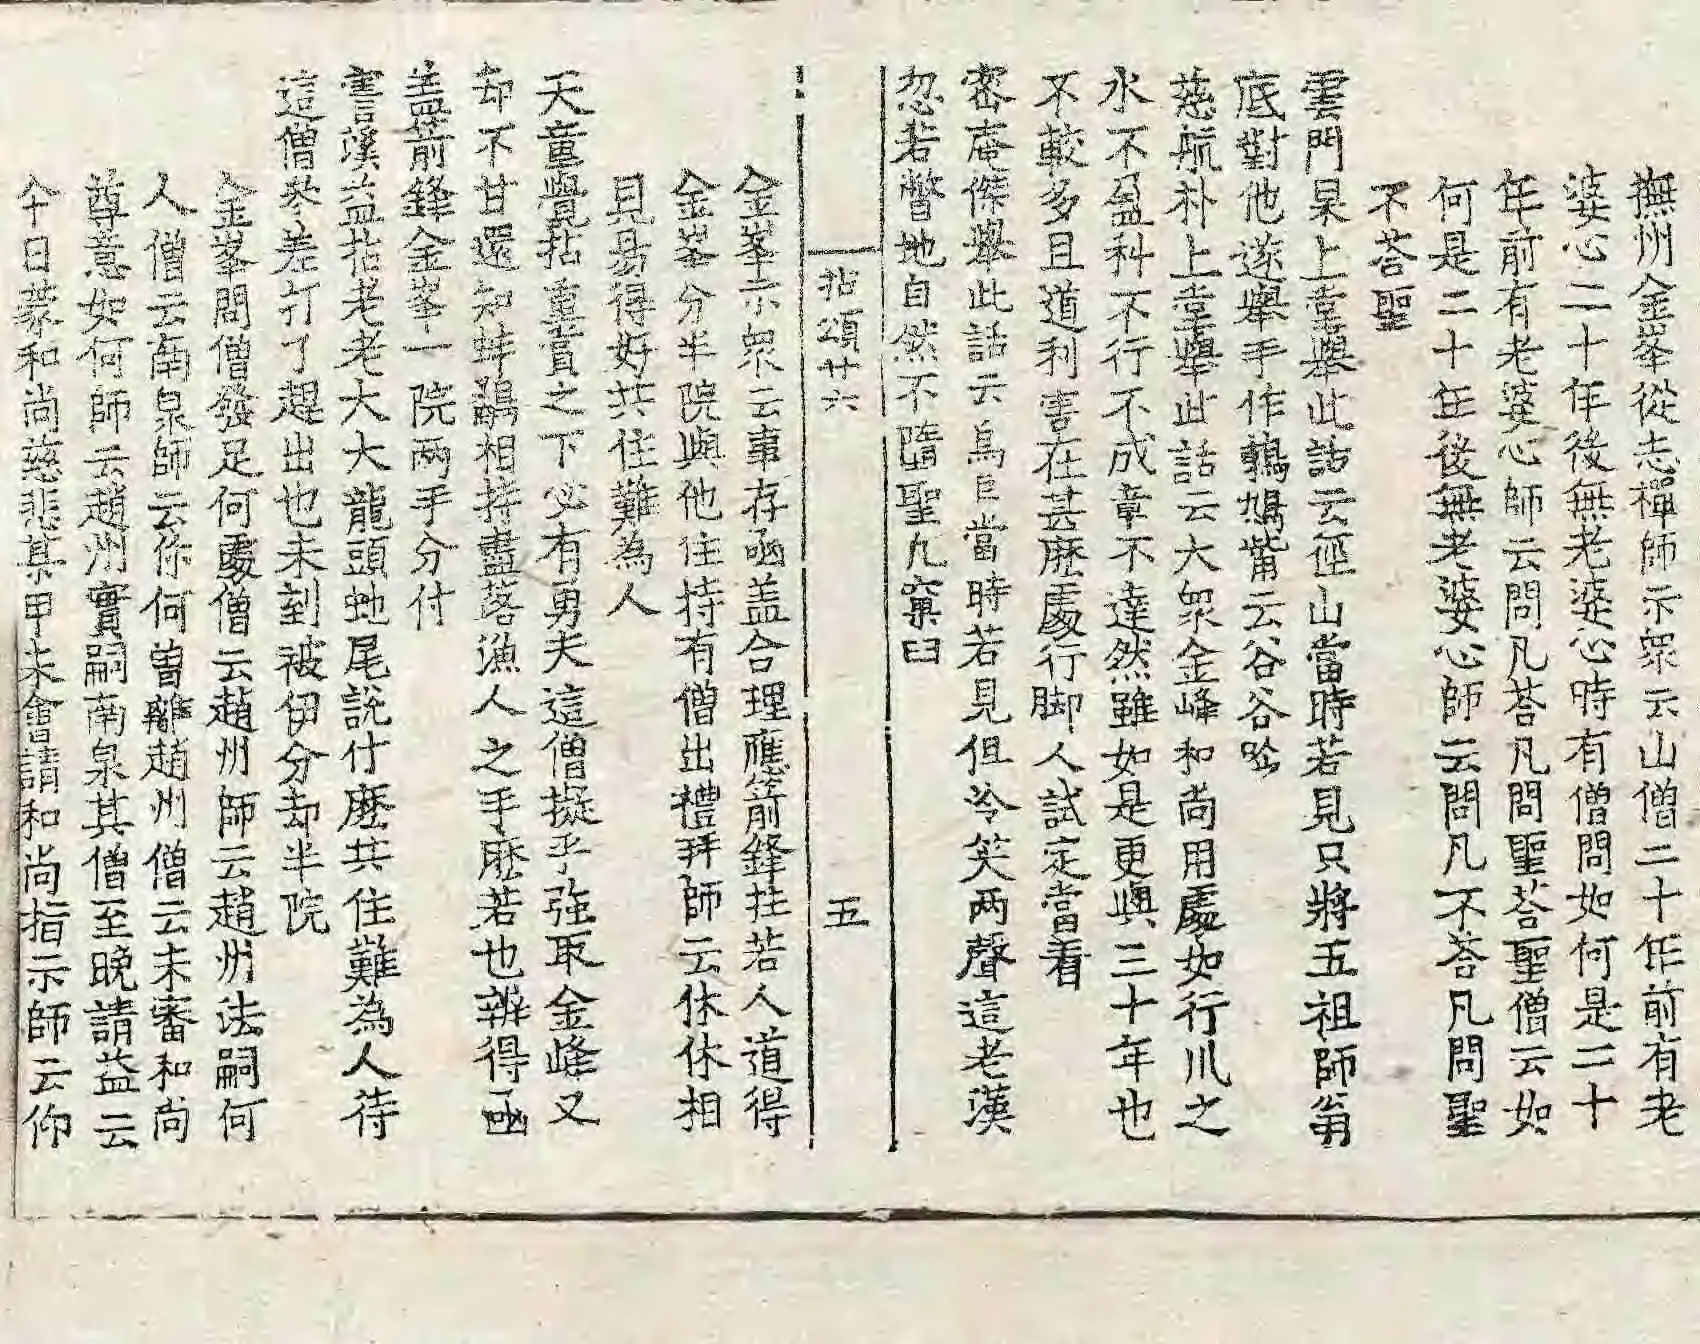 撫州金峯從志禪師示眾云山僧二十年前有老
婆心二十年後無老婆心時有僧問如何是二十
年前有老婆心師云問凡荅凡問聖荅聖僧云如
何是二十年後無老婆心師云問凡不荅凡問聖
不荅聖
雲門杲上堂舉此話云徑山當時若見只將五祖師翁
底對他遂舉手作鵓鳩觜云谷谷呱
慈航朴上堂舉此話云大眾金峰和尚用處如行川之
水不盈科不行不成章不達然雖如是更與三十年也
不較多且道利害在甚麽處行脚人試定當看
密庵傑舉此話云烏巨當時若見但冷笑兩聲這老漢
忽若瞥地自然不墮聖凡窠臼
拈頌廿六
五
金峯示眾云事存凾盖合理應箭鋒拄若人道得
金峯分半院與他住持有僧出禮拜師云休休相
見易得好共住難為人
天童覺拈重賞之下必有勇夫這僧擬乎強取金峰又
却不甘還知蚌鷸相持盡落漁人之手麽若也辨得凾
盖箭鋒金峯一院两手分付
雪溪益拈老老大大龍頭虵尾說什麽共住難為人待
這僧參差打了趕出也未到被伊分却半院
金峯問僧發足何處僧云趙州師云趙州法嗣何
人僧云南泉師云你何曾離趙州僧云未審和尚
尊意如何師云趙州實嗣南泉其僧至晚請益云
今日蒙和尚慈悲某甲未會請和尚指示師云仰